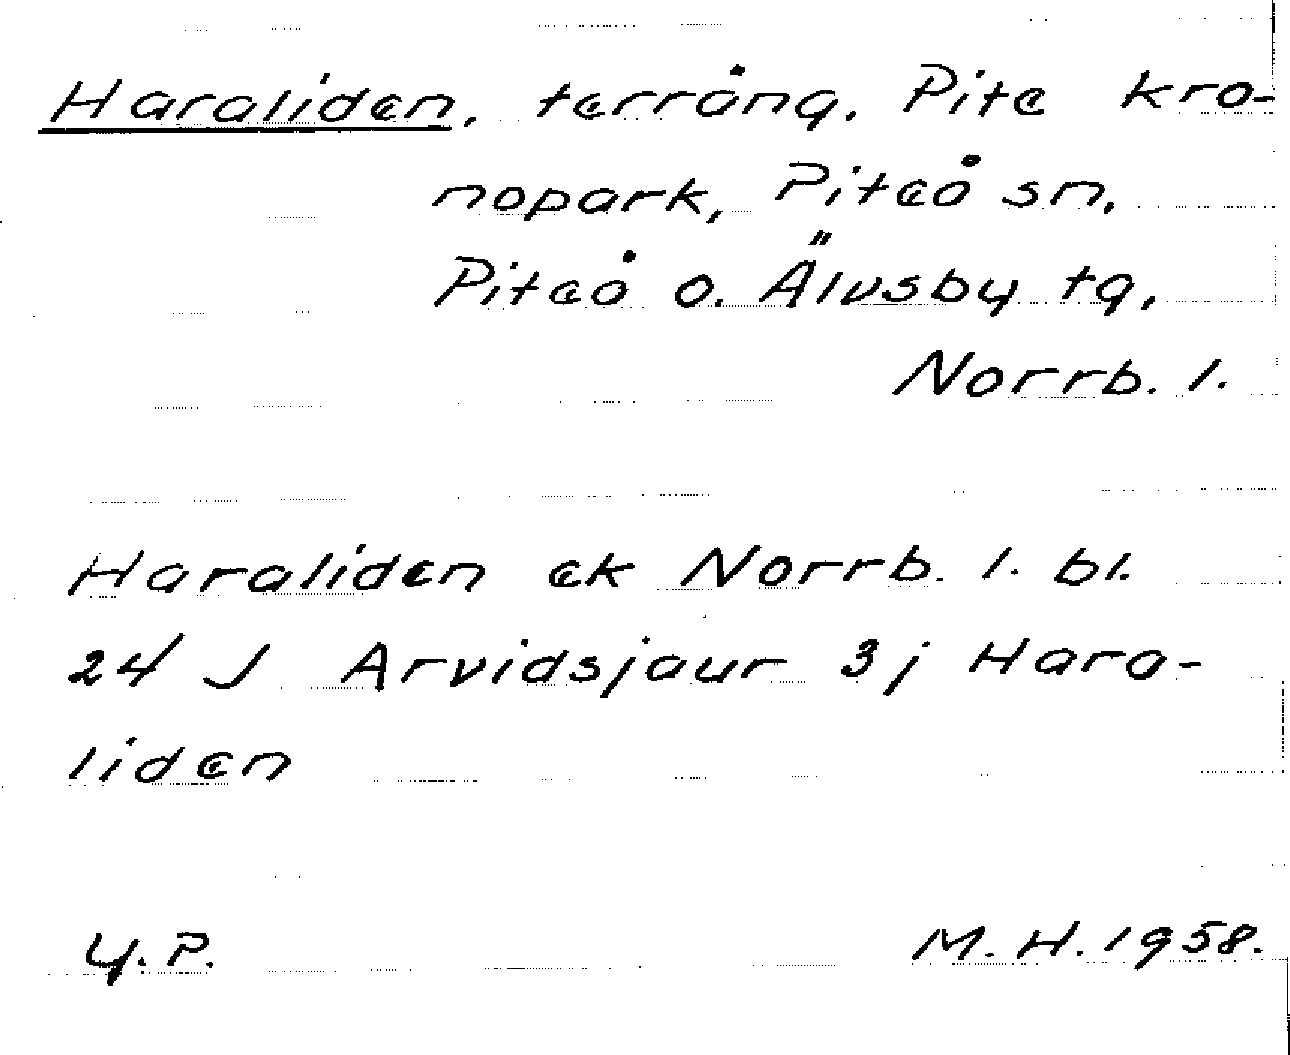 Haraliden, terräng, Pite kro-
nopark, Piteå sn,
Piteå o. Älvsby tg,
Norrb. l.
Haraliden ek Norrb. l. bl.
24 J Arvidsjaur 3j Hara-
liden
Y. P. M. H. 1958.